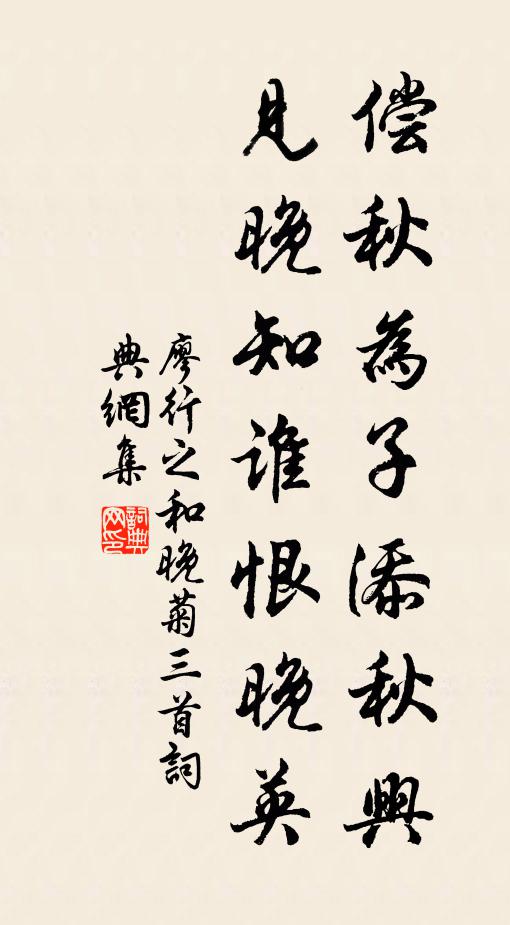 偿秋為子添秋興
見晚知誰恨晚英
廖行之和晚菊三首詞
典網集
詞典
网印